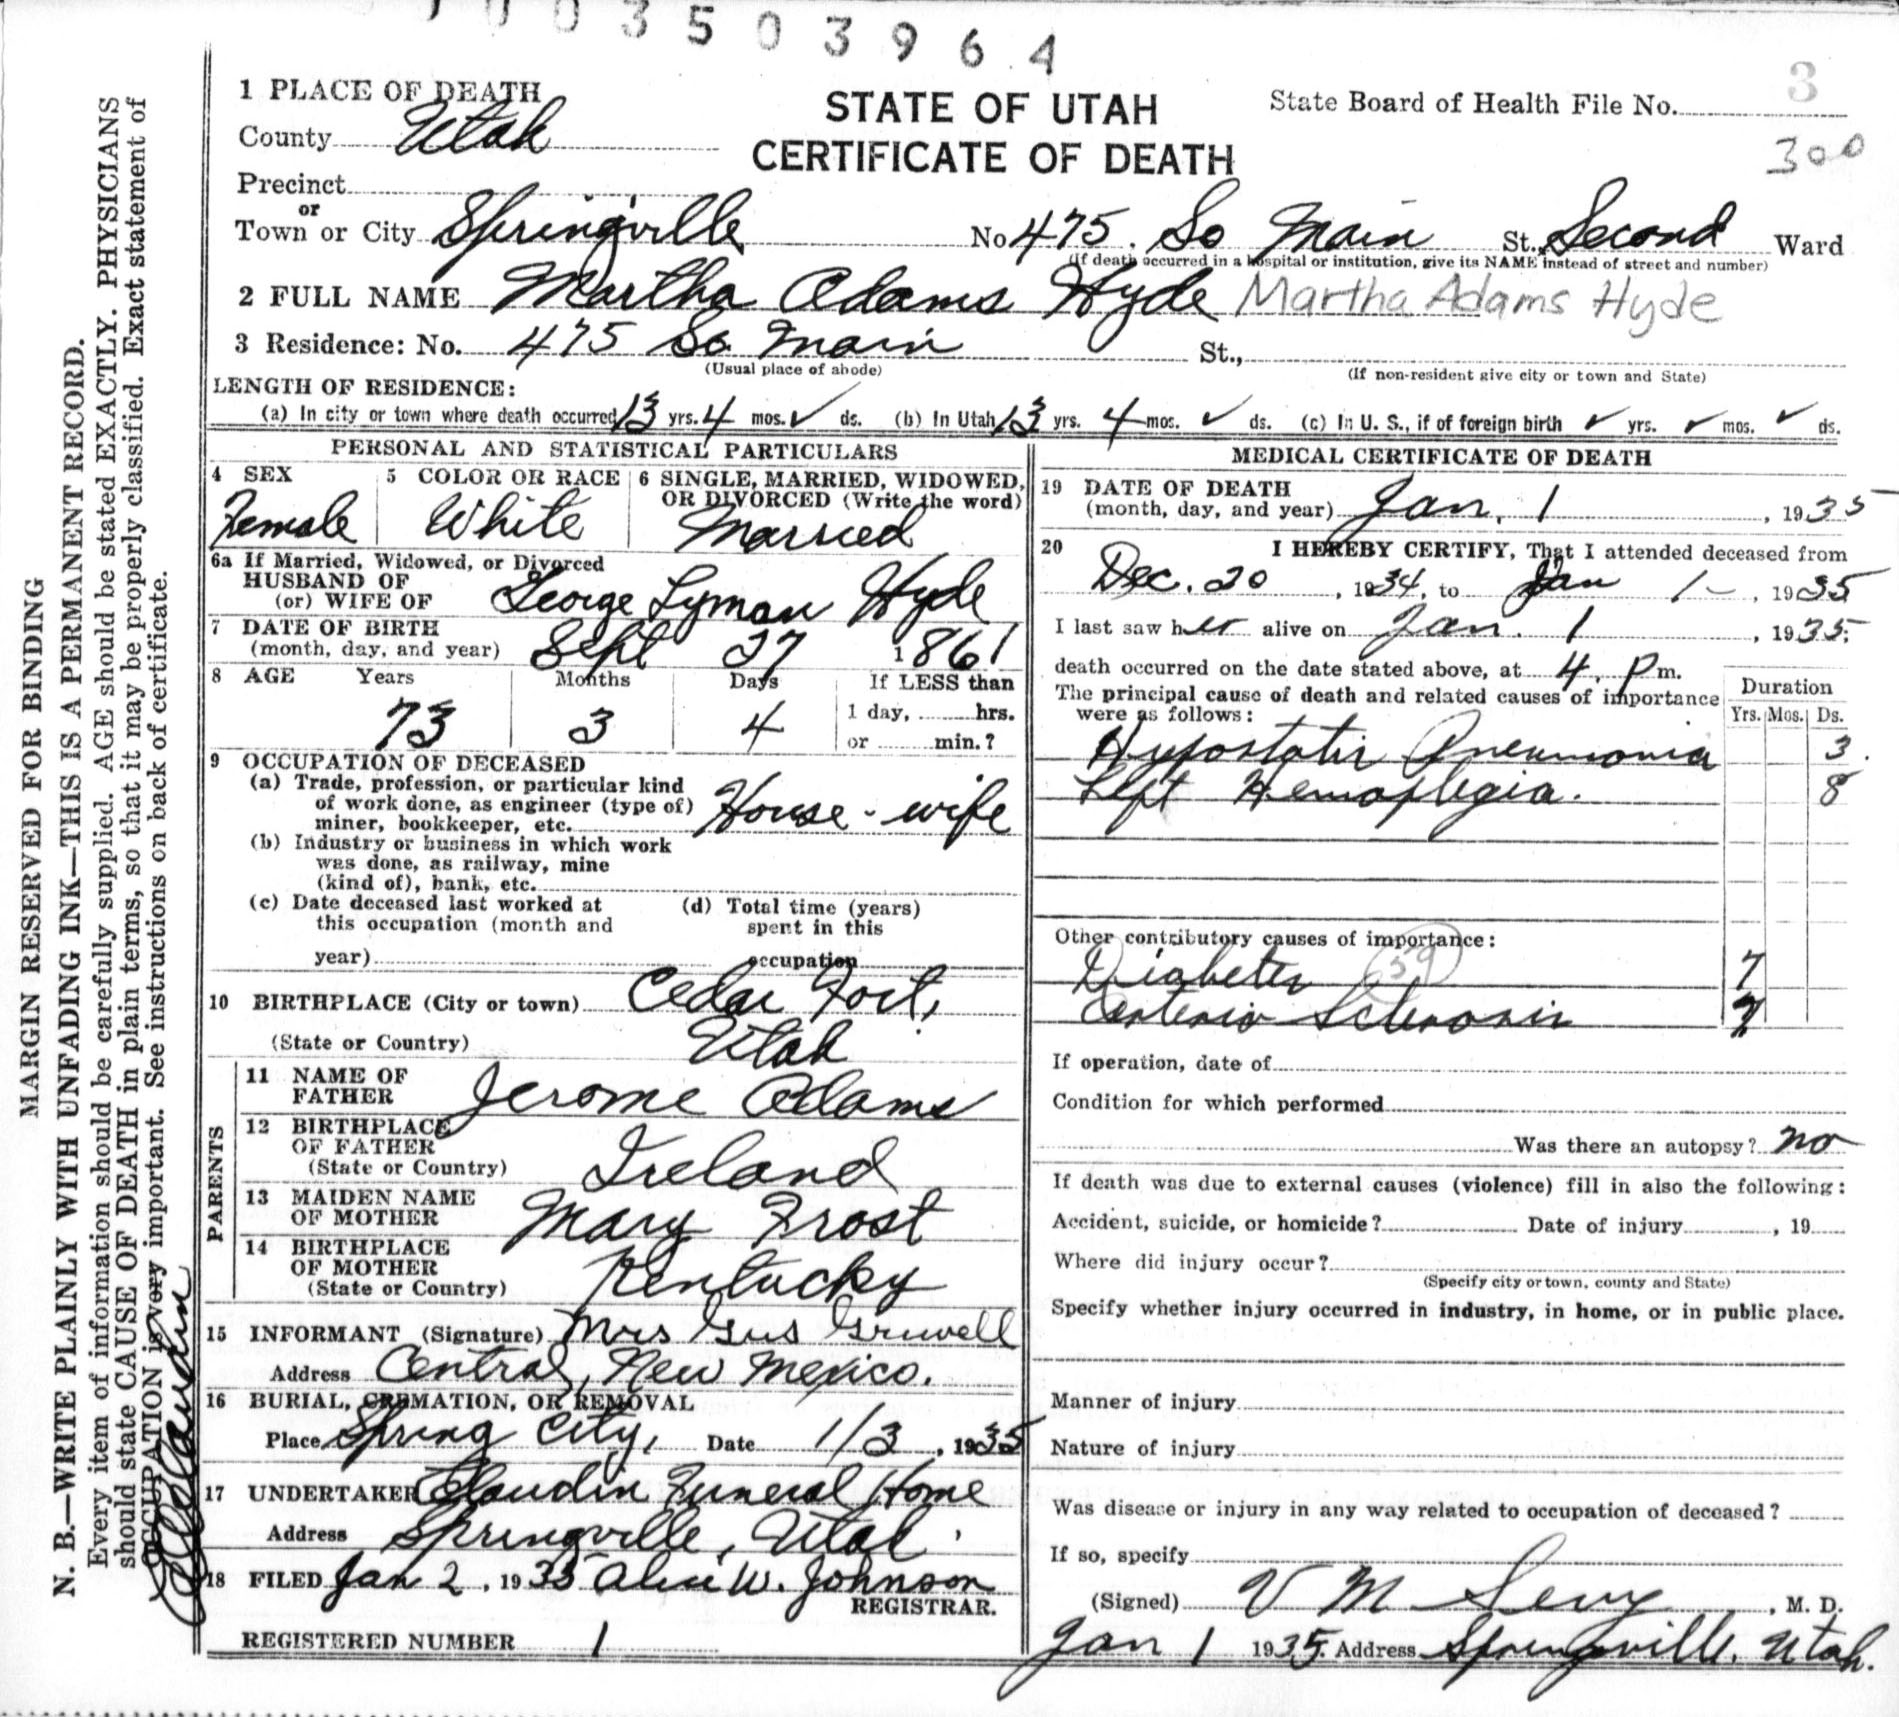 003503964
1 PLACE OF DEATH
County Utah
STATE OF UTAH
CERTIFICATE OF DEATH
State Board of Health File No. 3
300
Precinct
or
Town or City Springville No 475. So Main St., Second Ward
(If death occurred in a hospital or institution, give its NAME instead of street and number)
2 FULL NAME Martha Adams Hyde Martha Adams Hyde
3 Residence: No. 475 So. Main St.,
(Usual place of abode) (If non-resident give city or town and State)
LENGTH OF RESIDENCE:
(a) In city or town where death occurred 13 yrs. 4 mos. ✓ ds. (b) In Utah 13 yrs. 4 mos. ✓ ds. (c) In U. S., if of foreign birth ✓ yrs. ✓ mos. ✓ ds.
PERSONAL AND STATISTICAL PARTICULARS
4 SEX
Female
5 COLOR OR RACE
White
6 SINGLE, MARRIED, WIDOWED,
OR DIVORCED (Write the word)
Married
6a If Married, Widowed, or Divorced
HUSBAND OF
(or) WIFE OF George Lyman Hyde
7 DATE OF BIRTH
(month, day, and year) Sept 27 1861
8 AGE Years Months Days If LESS than
73 3 4 1 day, hrs.
or min.?
9 OCCUPATION OF DECEASED
(a) Trade, profession, or particular kind
of work done, as engineer (type of)
miner, bookkeeper, etc. House-wife
(b) Industry or business in which work
was done, as railway, mine
(kind of), bank, etc.
(c) Date deceased last worked at
this occupation (month and
year)
(d) Total time (years)
spent in this
occupation
10 BIRTHPLACE (City or town) Cedar Fort,
(State or Country) Utah
PARENTS
11 NAME OF
FATHER Jerome Adams
12 BIRTHPLACE
OF FATHER
(State or Country) Ireland
13 MAIDEN NAME
OF MOTHER Mary Frost
14 BIRTHPLACE
OF MOTHER
(State or Country) Kentucky
15 INFORMANT (Signature) Mrs Gus Gruwell
Address Central, New Mexico.
16 BURIAL, CREMATION, OR REMOVAL
Place Spring City, Date 1/3, 1935
17 UNDERTAKER Claudin Funeral Home
Address Springville, Utah
18 FILED Jan 2, 1935 Alice W. Johnson
REGISTRAR.
REGISTERED NUMBER 1
MEDICAL CERTIFICATE OF DEATH
19 DATE OF DEATH
(month, day, and year) Jan. 1, 1935
20 I HEREBY CERTIFY, That I attended deceased from
Dec. 20, 1934, to Jan 1-, 1935
I last saw her alive on Jan. 1, 1935;
death occurred on the date stated above, at 4. P m.
The principal cause of death and related causes of importance
were as follows:
Duration
Yrs. Mos. Ds.
Hypostatic Pneumonia 3.
Left Hemoplegia. 8
Other contributory causes of importance:
Diabetes 59 7
Arterio Sclerosis
If operation, date of
Condition for which performed
Was there an autopsy? no
If death was due to external causes (violence) fill in also the following:
Accident, suicide, or homicide? Date of injury, 19
Where did injury occur?
(Specify city or town, county and State)
Specify whether injury occurred in industry, in home, or in public place.
Manner of injury
Nature of injury
Was disease or injury in any way related to occupation of deceased?
If so, specify
(Signed) V M Sevy, M. D.
Jan 1 1935. Address Springville, Utah.
MARGIN RESERVED FOR BINDING
N. B.—WRITE PLAINLY WITH UNFADING INK—THIS IS A PERMANENT RECORD.
Every item of information should be carefully supplied. AGE should be stated EXACTLY. PHYSICIANS
should state CAUSE OF DEATH in plain terms, so that it may be properly classified. Exact statement of
OCCUPATION is very important. See instructions on back of certificate.